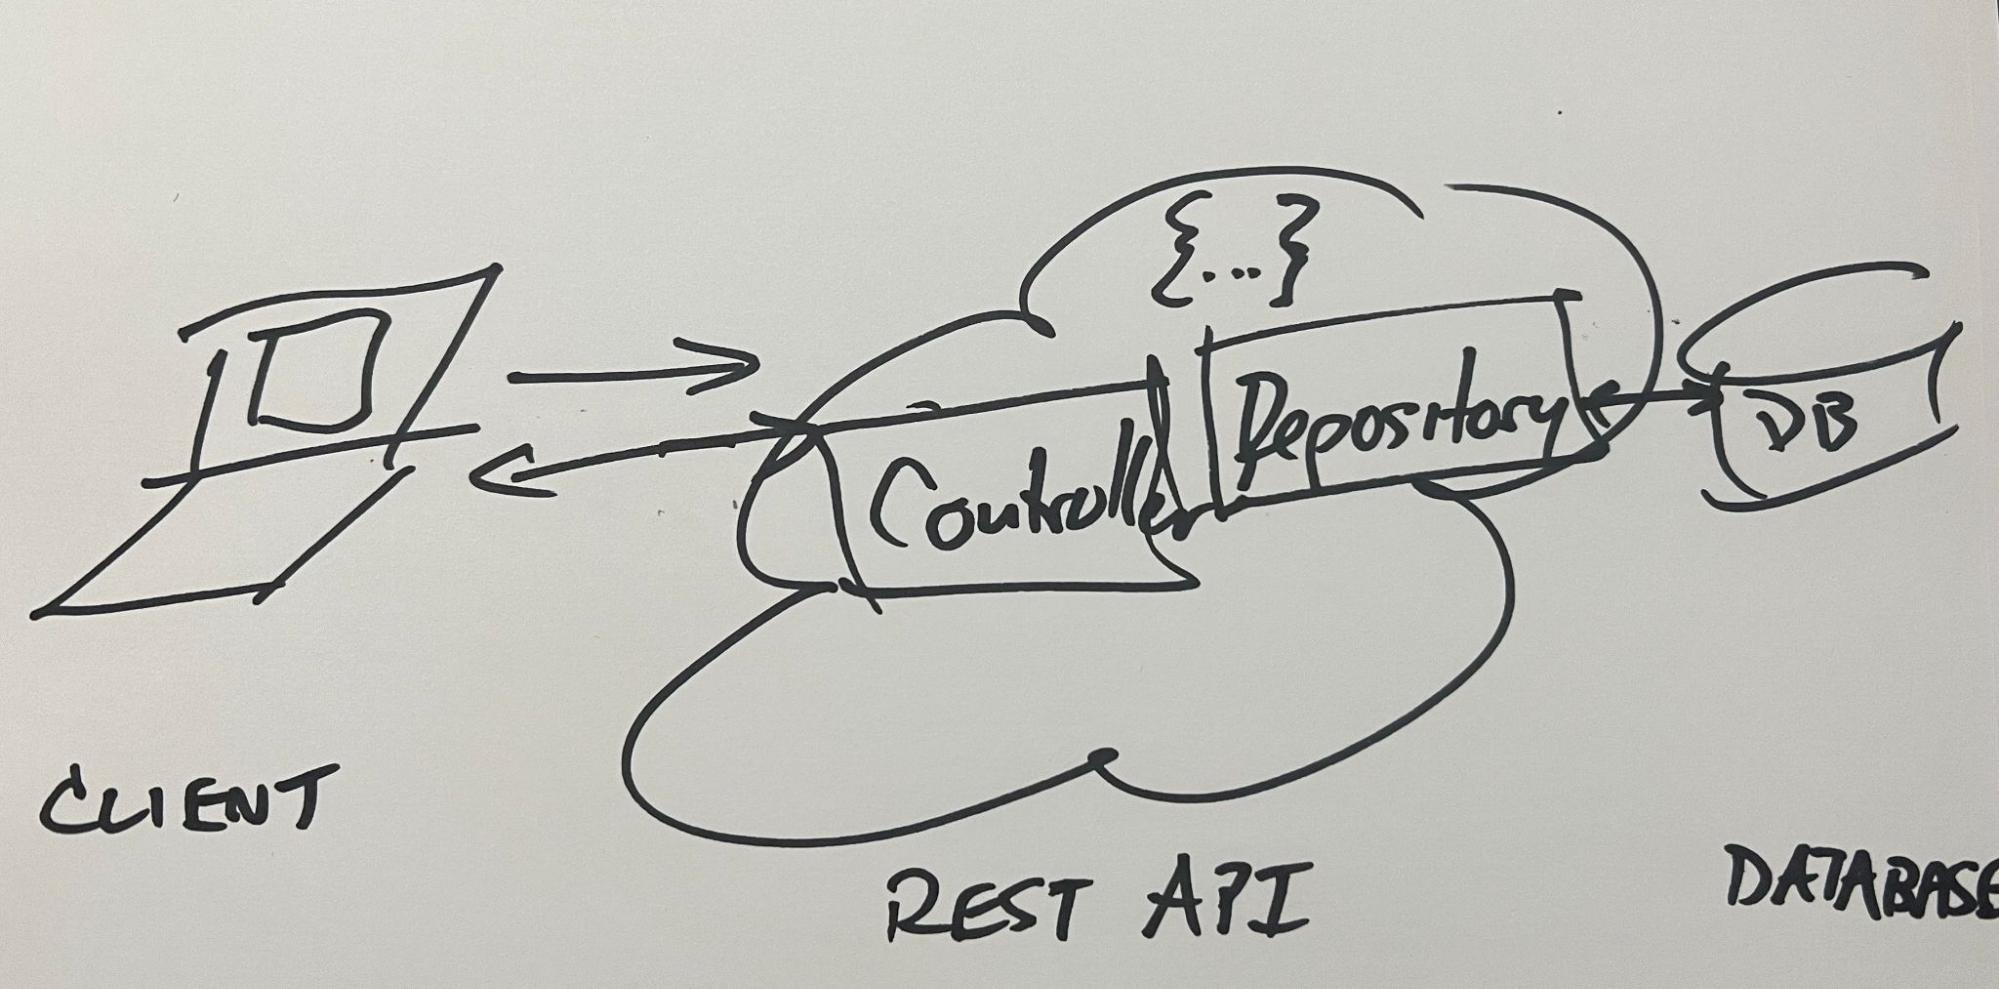 {...}
Controller
Repository
DB
CLIENT
REST API
DATABASE